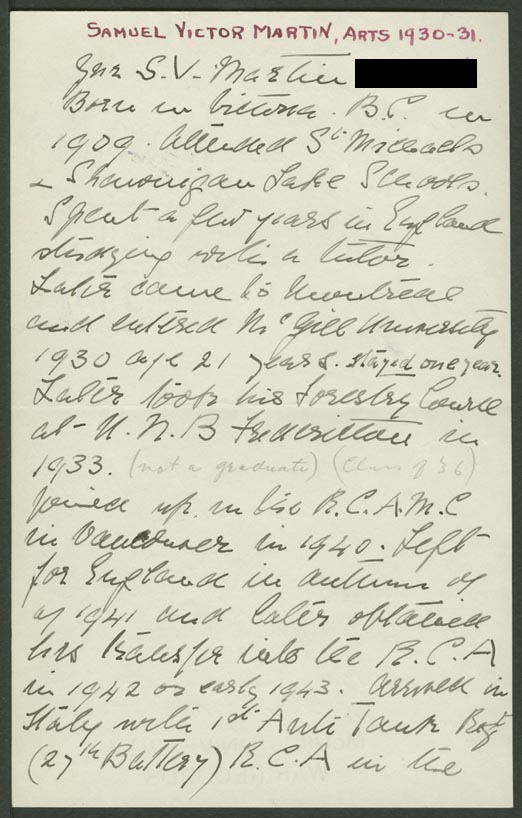 SAMUEL VICTOR MARTIN, ARTS 1930-31.
Gnr S.V. Martin
Born in Victoria. B.C. in
1909. Attended St Michaels
& Shawnigan Lake Schools.
Spent a few years in England
studying with a tutor.
Later came to Montreal
and entered McGill University
1930 age 21 years. Stayed one year.
Later took his Forestry Course
at U.N.B Fredericton in
1933. (not a graduate) (Class of '36)
Joined up in the R.C.A.M.C
in Vancouver in 1940. Left
for England in autumn of
of 1941 and later obtained
his transfer into the R.C.A
in 1942 or early 1943. Arrived in
Italy with 1st Anti Tank Regt
(27th Battery) R.C.A in the